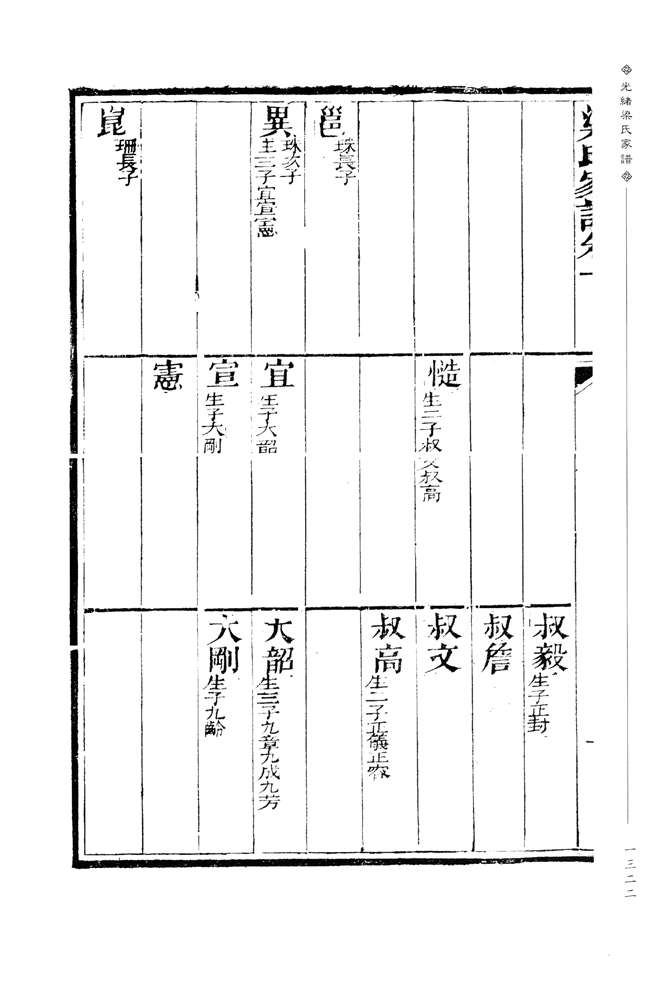 光緒梁氏家譜
一三二二
梁氏家譜卷一
邕 珠長子
異 珠次子
生三子宜宣憲
崑 珊長子
慥 生二子叔文叔高
宜 生子大韶
宣 生子大剛
憲
叔毅 生子正封
叔詹
叔文
叔高 生二子正儀正容
大韶 生三子九章九成九芳
大剛 生子九齡